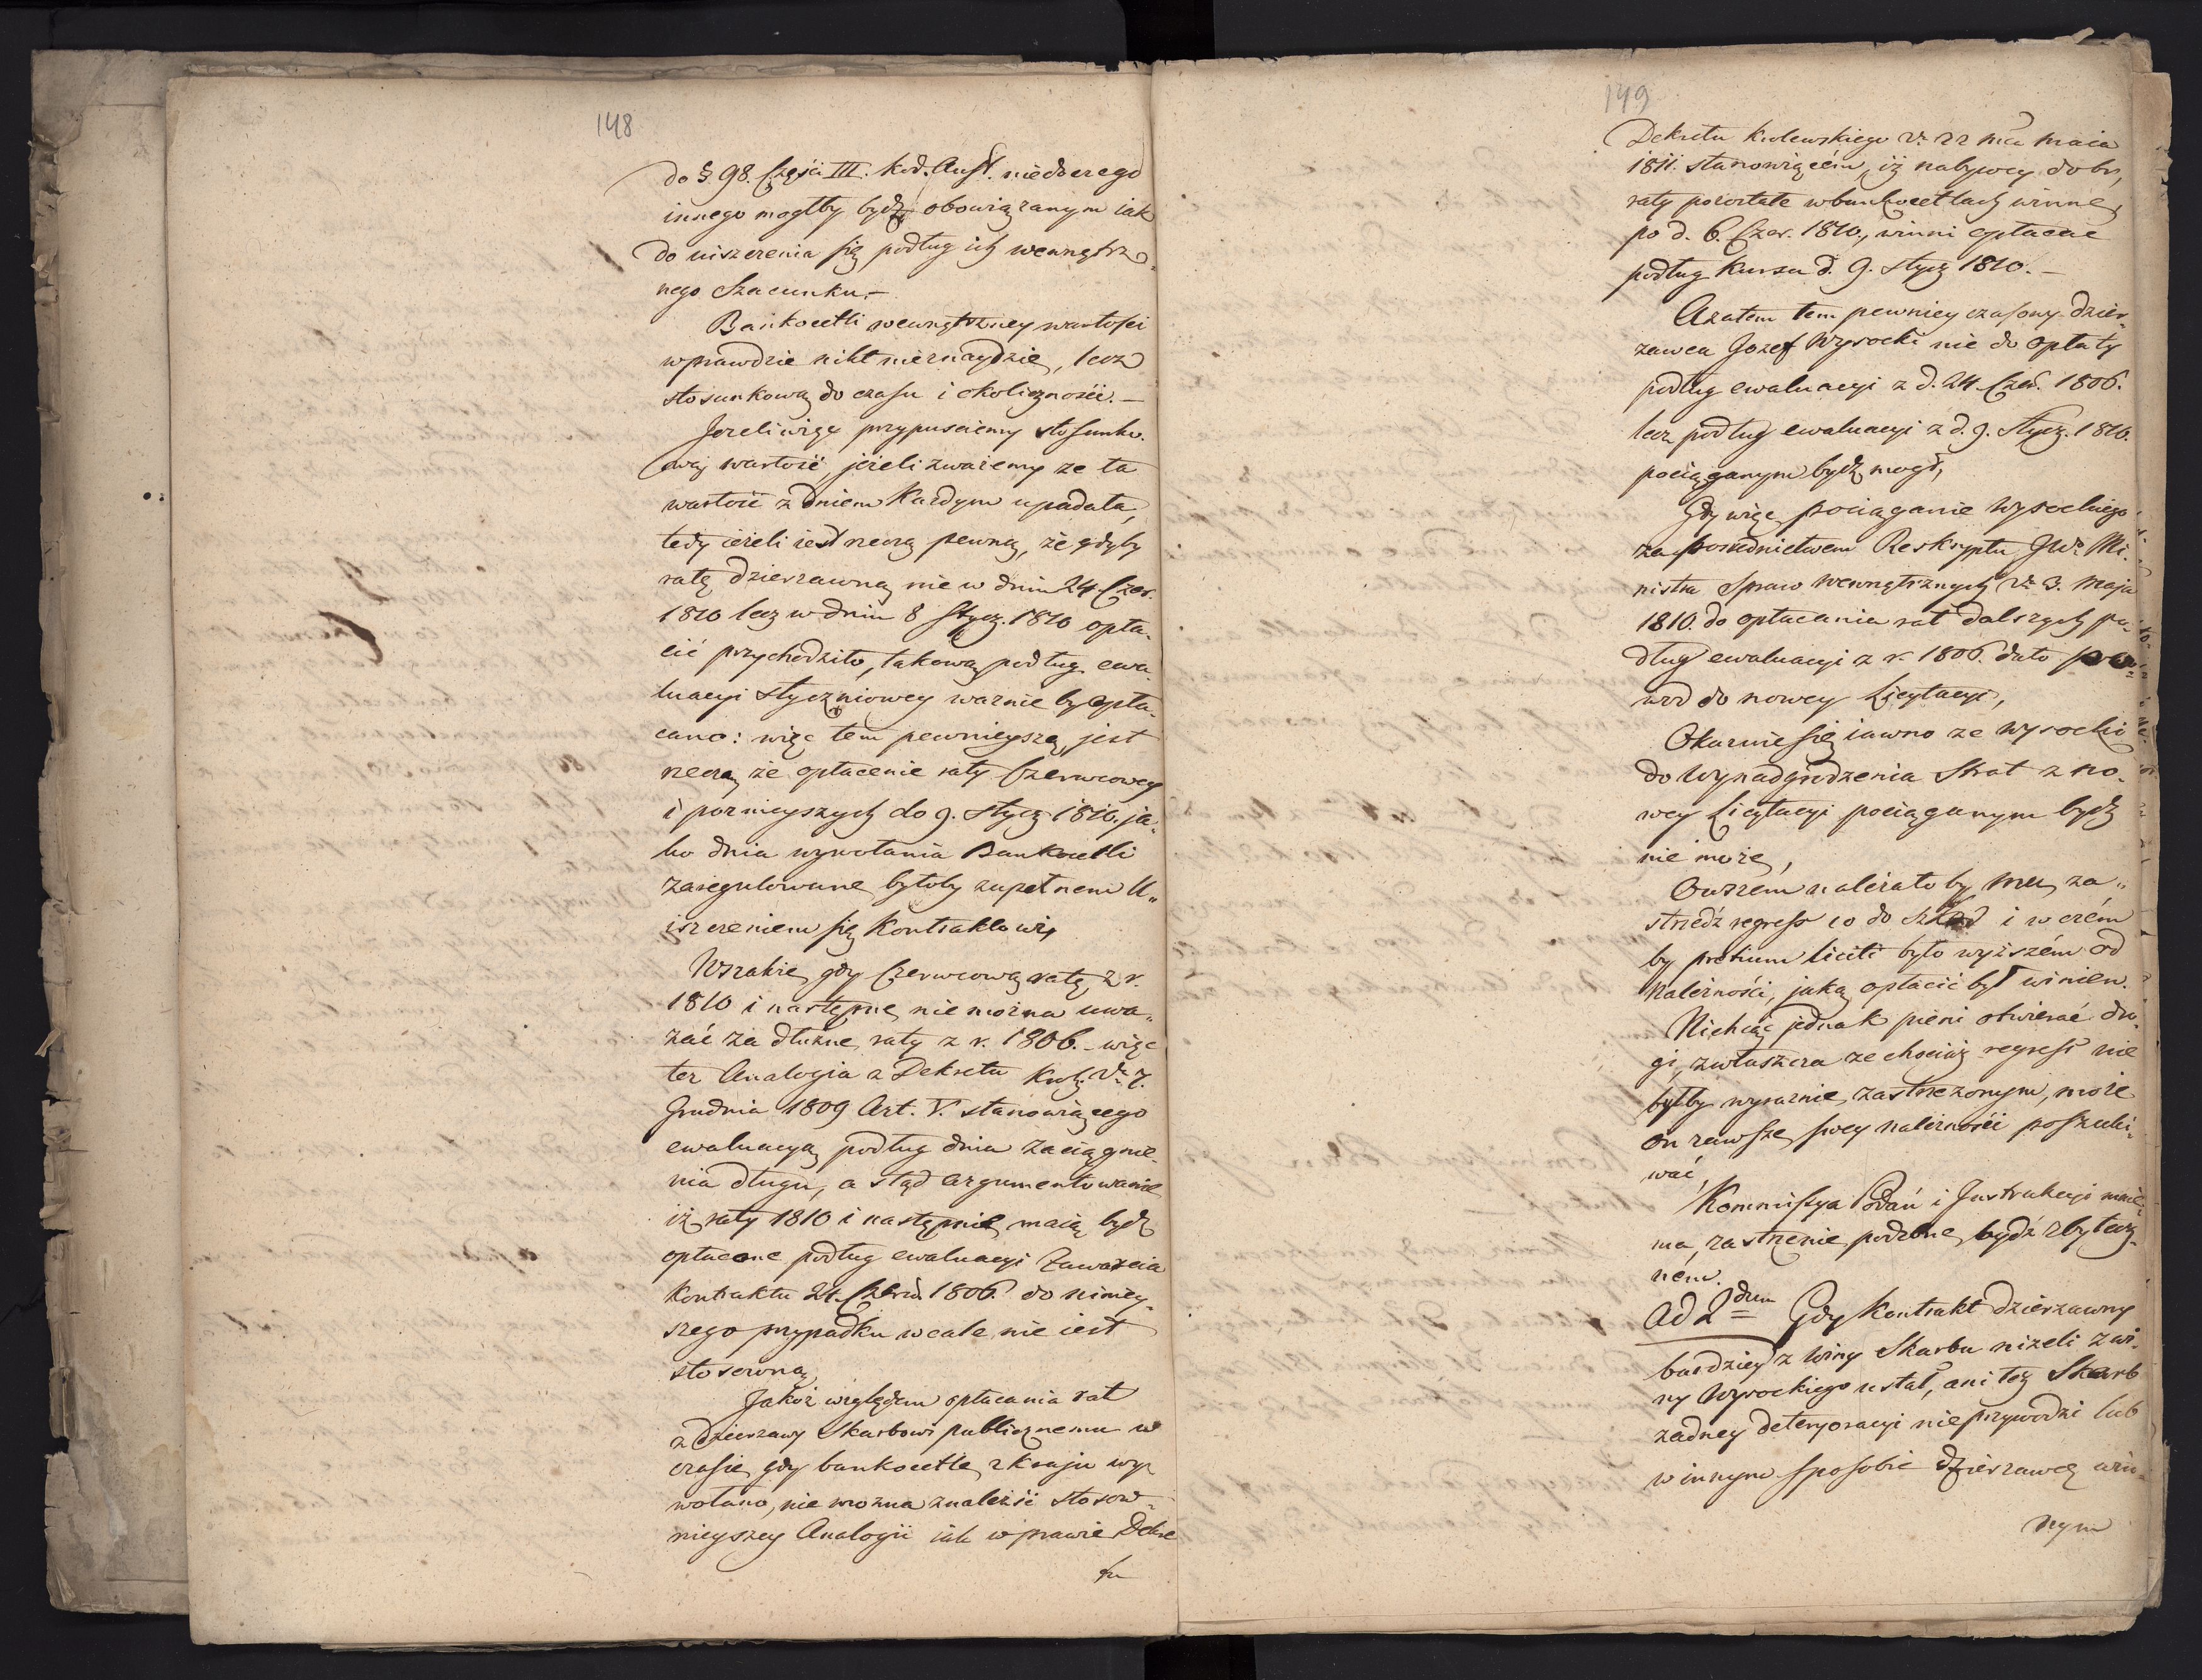 148
do §. 98. Części III. Kod. Aust. nieczego
innego mogłby bydź obowiązanym iak
do uiszczenia się podług ich wewnętrz„
nego Szacunku. –
Bankocetli wewnętrzney wartości
wprawdzie nikt nieznaydzie, lecz
stosunkową do czasu i okoliczności. –
Jeżeli więc przypuściemy stosunko„
wą wartość, jeżeli zważemy ze ta
wartość z dniem każdym upadała,
tedy ieżeli iest rzeczą pewną, że gdyby
ratę dzierzawną nie w dniu 24 Czer.
1810 lecz w dniu 8 Stycz. 1810 opła„
cić przychodziło, takową podług ewa„
luacyi Styczniowey ważnie by opła„
cano: więc tem pewnieyszą jest
rzeczą że opłacenie raty Czerwcowey
i poznieyszych do 9. Stycz 1810. ja„
ko dnia wywołania Bankocetli
zaregulowane byłoby zupełnem U„
iszczeniem się Kontraktowi,
Wszakże gdy Czerwcową ratę z r.
1810 i następne nie można uwa„
żać za dłużne raty z r. 1806. – więc
też Analogia z Dekretu Król: dº 7.
Grudnia 1809 Art. V. stanowiącego
ewaluacyą podług dnia zaciągnie„
nia długu, a stąd argumentowanie
iż raty 1810 i następnie maią bydź
opłacone podług ewaluacyi Zawarcia
Kontraktu 24. Czerw. 1806. do niniey„
szego przypadku wcale nie iest
stosowną
Jakoż względem opłacania rat
z dzierzawy Skarbowi publicznemu w
czasie gdy bankocetle z kraju wy„
wołano, nie można znaleźść stosow„
nieyszey Analogii iak w prawie Dekre
tu
149
Dekretu Królewskiego dº 22 mca Maia
1811. stanowiącém, iż nabywcy dobr,
raty pozostałe w bankocetlach winne,
po d. 6. Czer. 1810., winni opłacać
podług Kursu d. 9. Stycz 1810. –
Azatem tem pewniey czasowy dzier„
zawca Jozef Wysocki nie do opłaty
podług ewaluacyi z d. 24. Czer. 1806.
lecz podług ewaluacyi z d. 9. Stycz. 1810.
pociąganym bydź mogł,
Gdy więc pociąganie Wysockiego
za posrednictwem Reskryptu JWº Mi„
nistra Spraw Wewnętrznych dº 3. Maja
1810. do opłacania rat dalszych po„
dług ewaluacyi z r. 1806. dało po„
wod do nowey Licytacyi,
Okazuie się iawno ze Wysocki
do Wynadgrodzenia Strat z no„
wey Licytacyi pociąganym bydź
nie może,
Owszem należało by mu za„
strzedz regress co do szkod i w czém
by pretium liciti było wyższém od
Należności, jaką opłacić był winien.
Niechcąc jednak pieni otwierać dro„
gi, zwłaszcza ze chociaż regress nie
byłby wyraznie zastrzeżonym, może
on zawsze swey należności poszuki„
wać,
Kommissya Podań i Instrukcyi mnie„
ma, zastrzenie podobne bydź zbytecz„
ném.
Ad 2dum Gdy kontrakt dzierzawny
bardziey z Winy Skarbu nizeli z wi„
ny Wysockiego ustał, ani też Skarb
zadney deteryoracyi nieprzywodzi lub
w innym sposobie dzierzawcę win„
nym